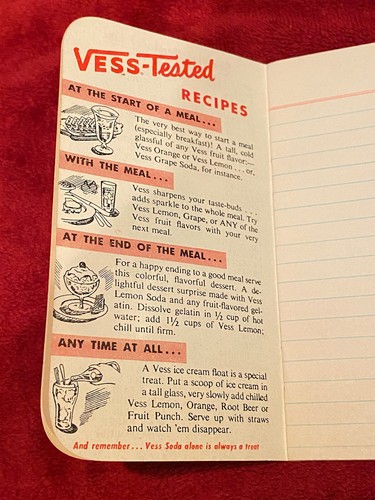 VESS-Tested
RECIPES
AT THE START OF A MEAL...
The very best way to start a meal
(especially breakfast)! A tall, cold
glassful of any Vess fruit flavor:—
Vess Orange or Vess Lemon . . . or,
Vess Grape Soda, for instance.
WITH THE MEAL...
Vess sharpens your taste-buds . . .
adds sparkle to the whole meal. Try
Vess Lemon, Grape, or ANY of the
Vess fruit flavors with your very
next meal.
AT THE END OF THE MEAL...
For a happy ending to a good meal serve
this colorful, flavorful dessert. A de-
lightful dessert surprise made with Vess
Lemon Soda and any fruit-flavored gel-
atin. Dissolve gelatin in ½ cup of hot
water; add 1½ cups of Vess Lemon;
chill until firm.
ANY TIME AT ALL...
A Vess ice cream float is a special
treat. Put a scoop of ice cream in
a tall glass, very slowly add chilled
Vess Lemon, Orange, Root Beer or
Fruit Punch. Serve up with straws
and watch 'em disappear.
And remember... Vess Soda alone is always a treat